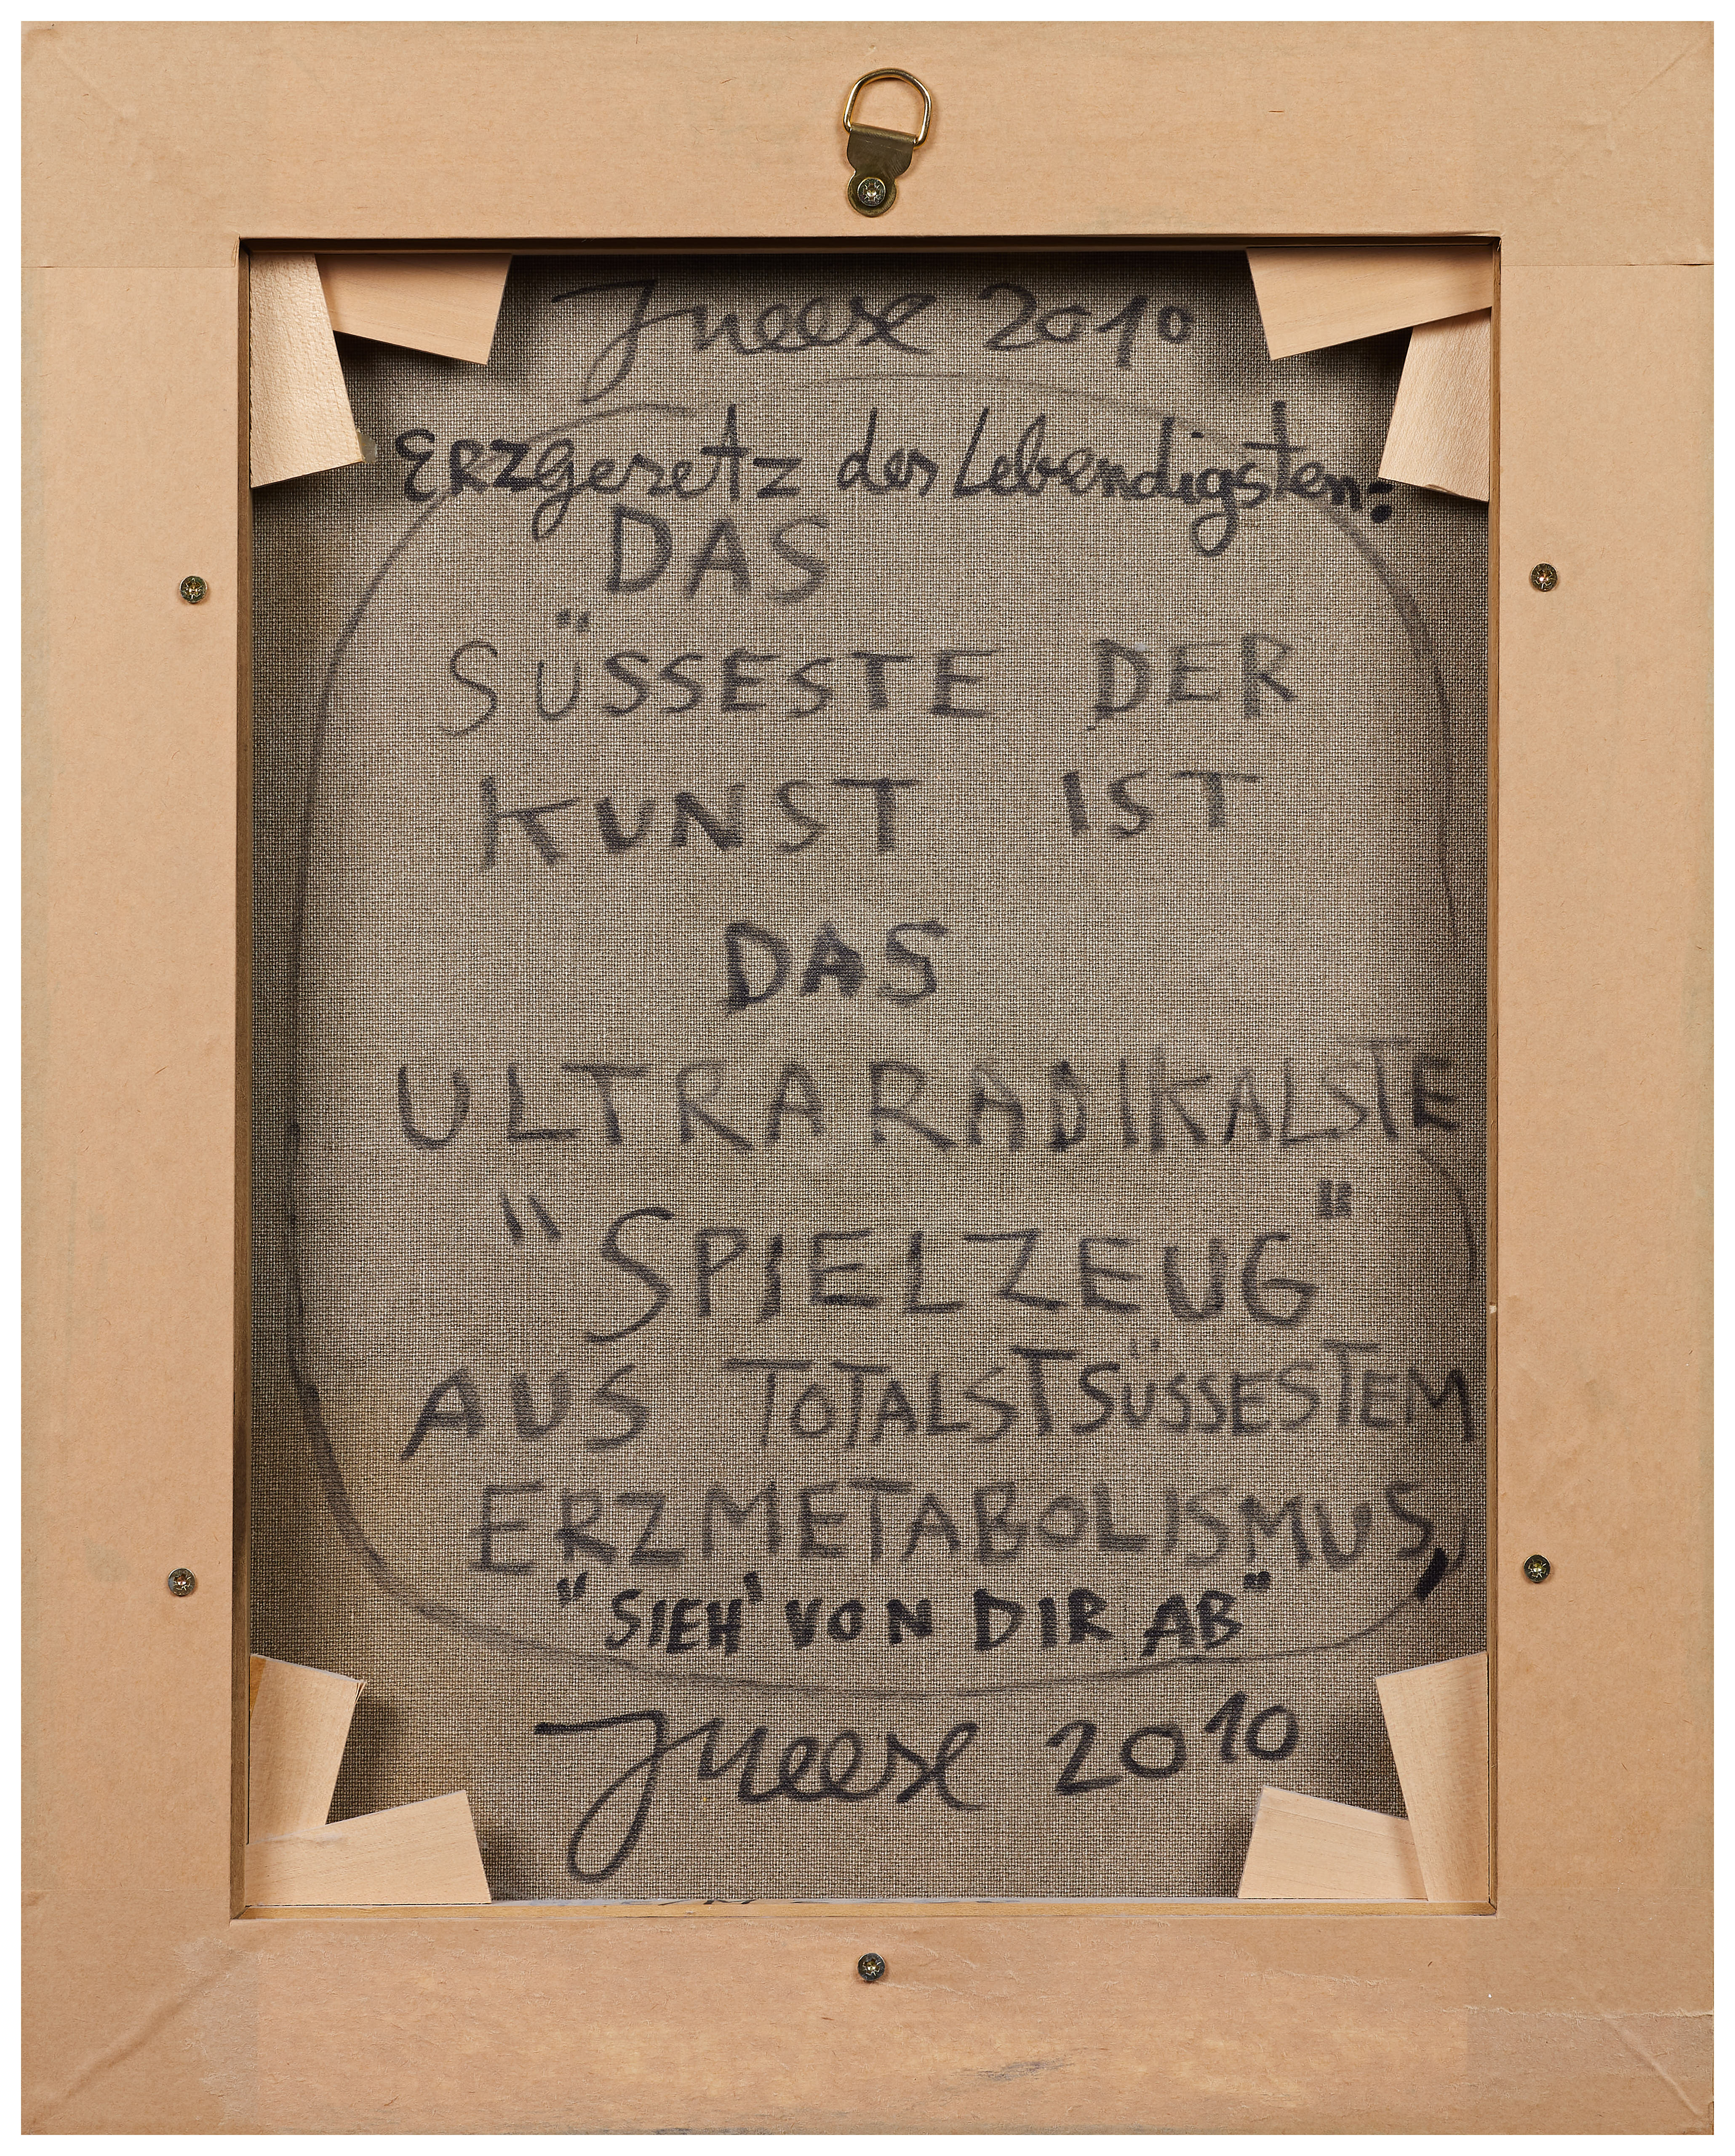 JMeese 2010
Erzgesetz des Lebendigsten:
DAS
SÜSSESTE DER
KUNST IST
DAS
ULTRARADIKALSTE
"SPIELZEUG"
AUS TOTALSTSÜSSESTEM
ERZMETABOLISMUS,
"SIEH' VON DIR AB"
JMeese 2010